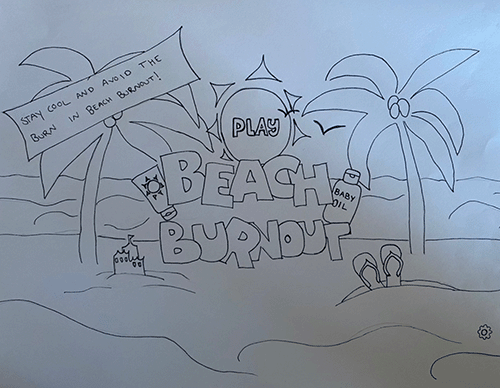 STAY COOL AND AVOID THE
BURN IN BEACH BURNOUT!
PLAY
BEACH
BURNOUT
BABY
OIL